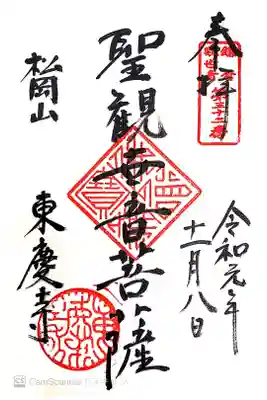 奉拝
聖観世音菩薩
松岡山
東慶寺
令和元年
十一月八日
CamScanner